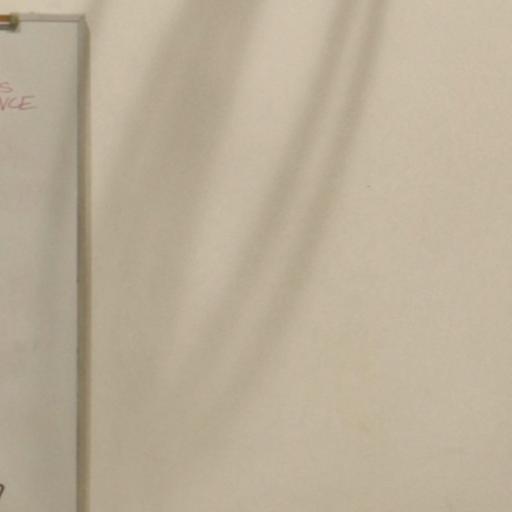 S
NCE